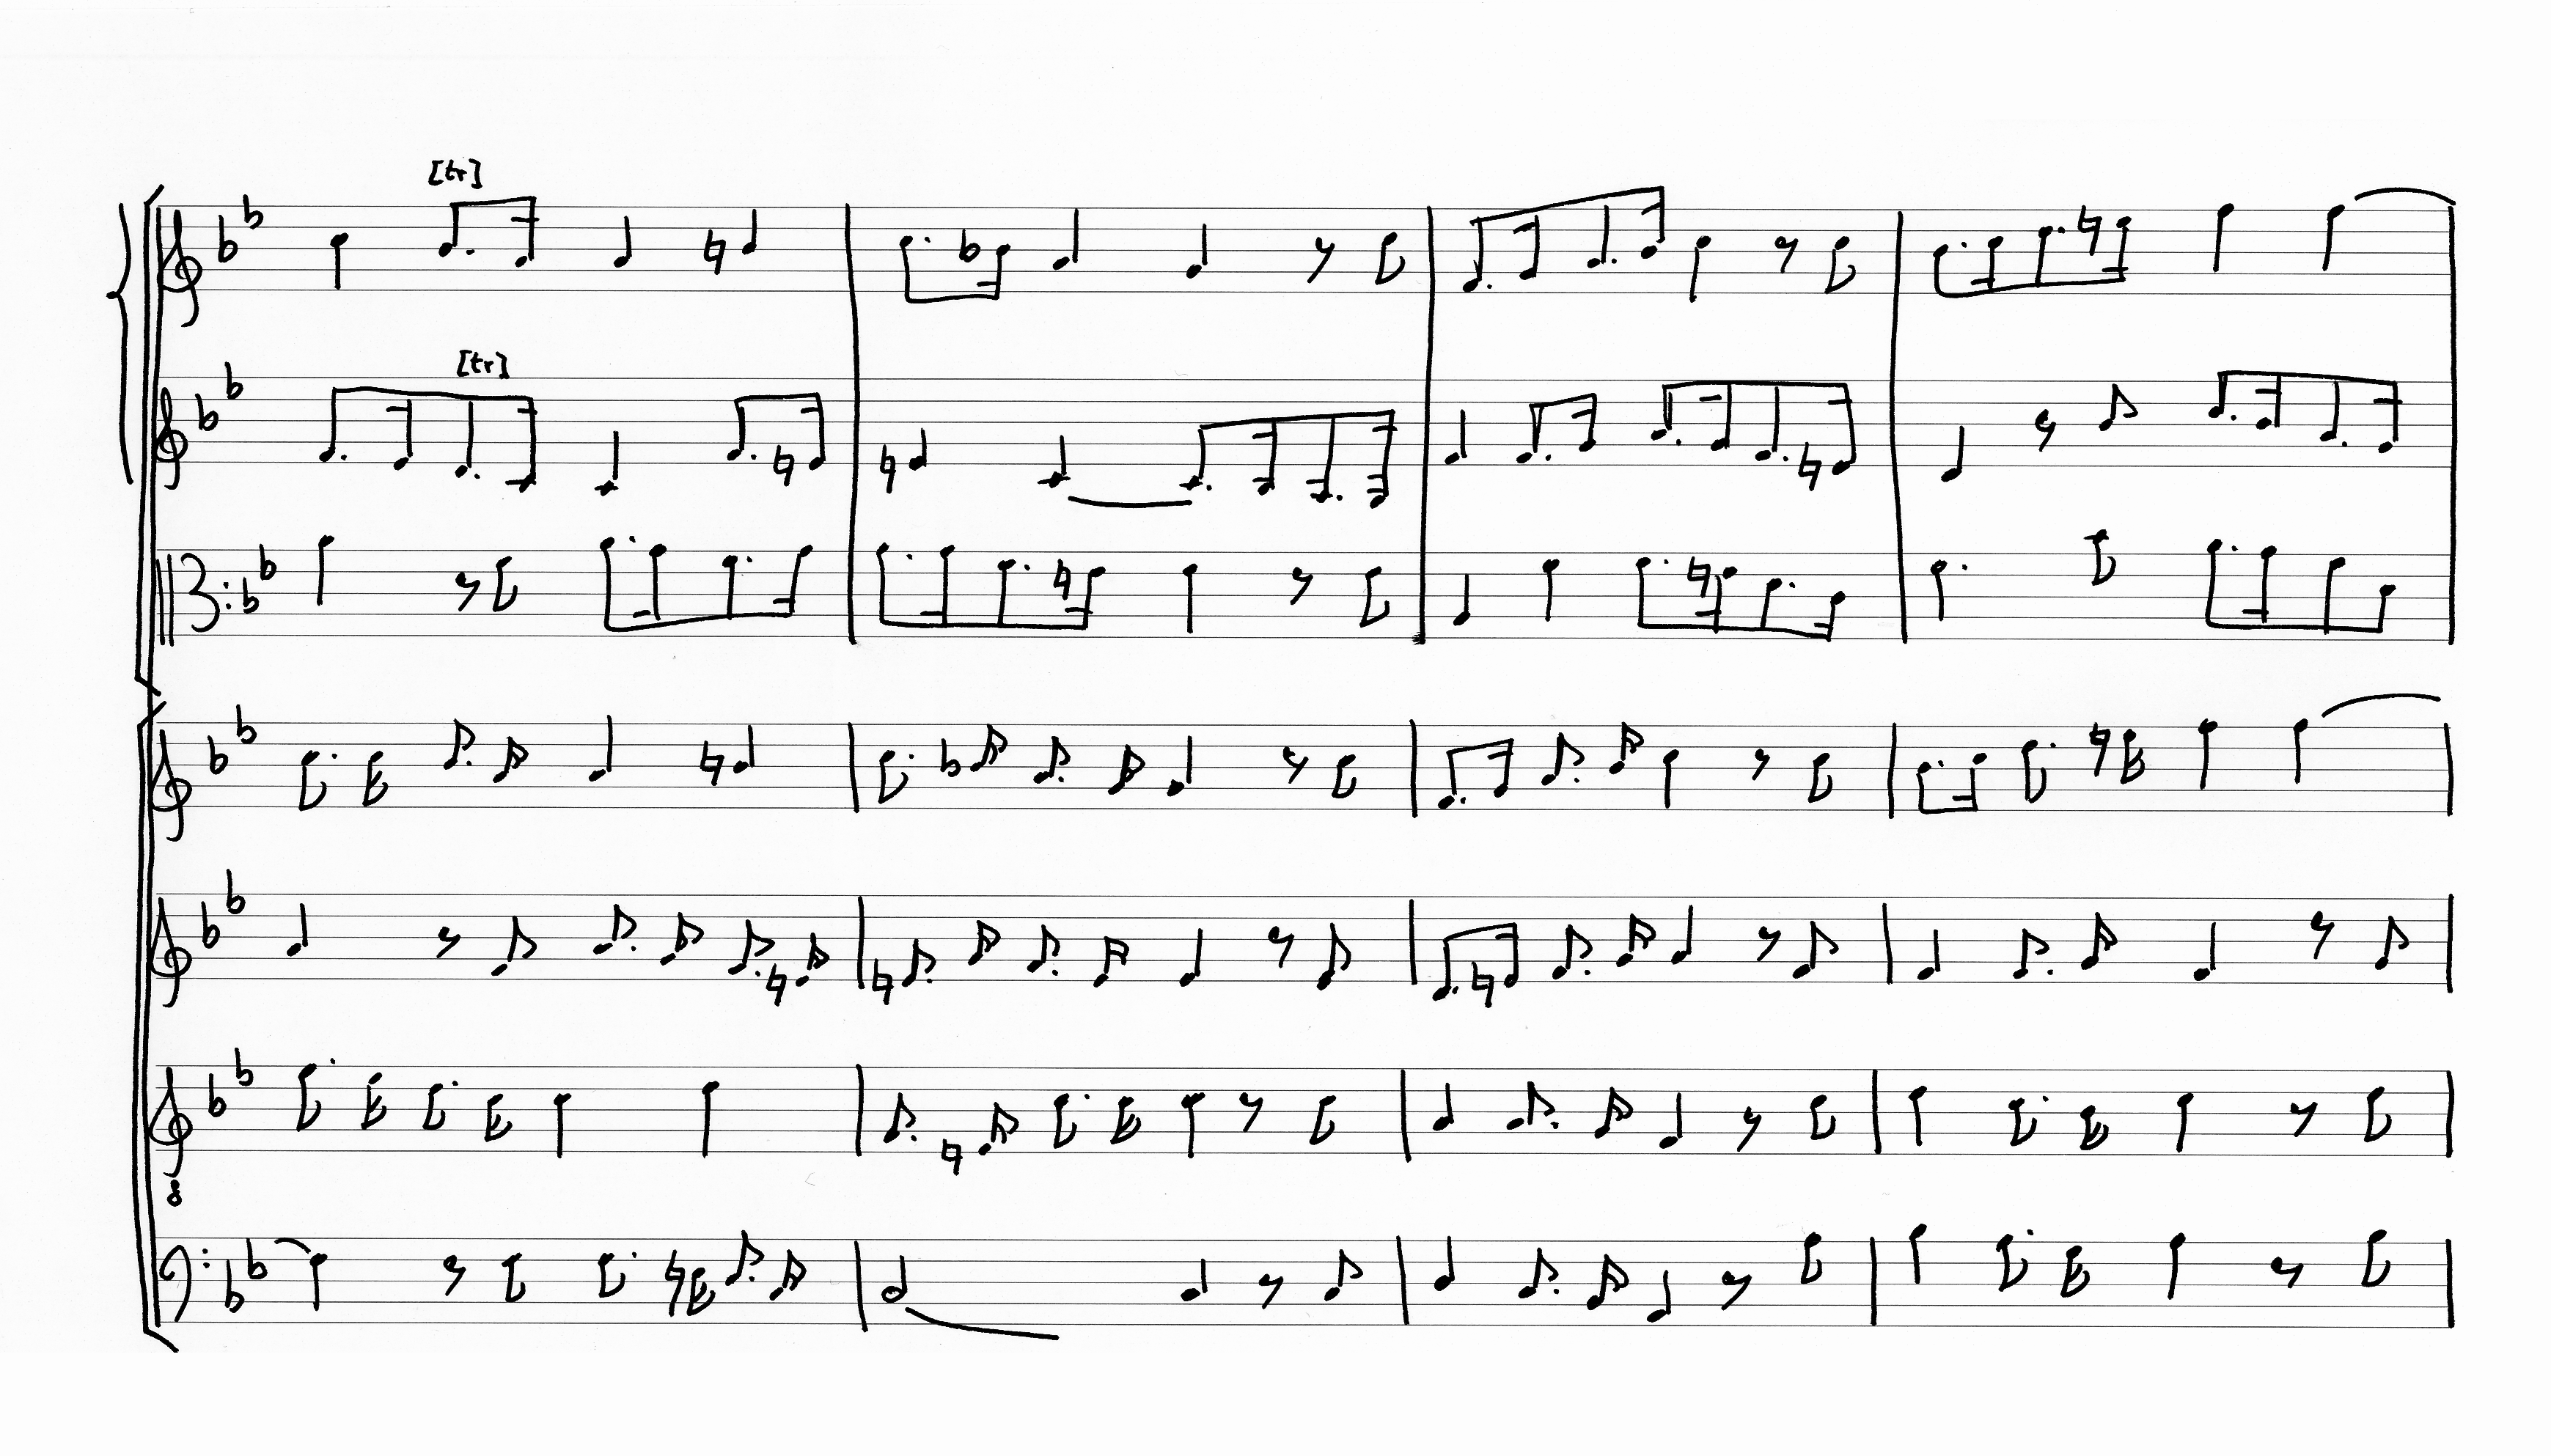 [tr]
[tr]
8